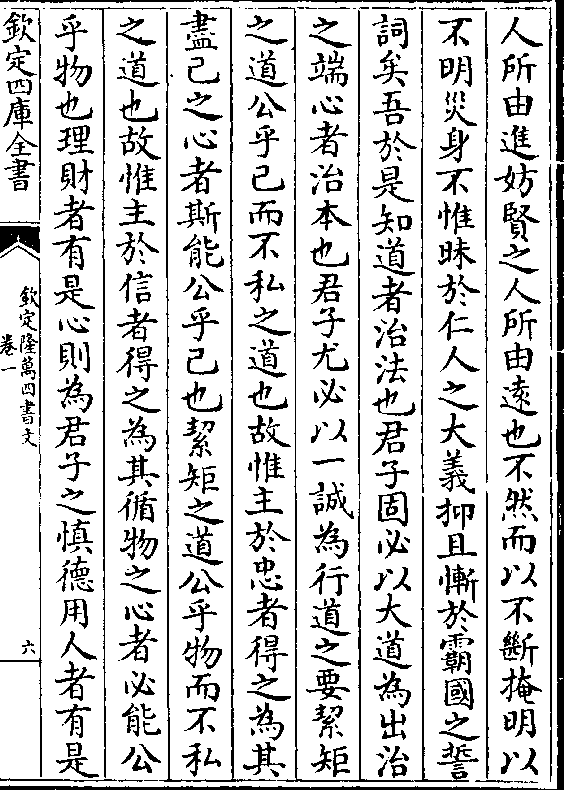 人所由進妨賢之人所由逺也不然而以不斷掩明以
不明災身不惟昧於仁人之大義抑且慚於霸國之誓
詞矣吾於是知道者治法也君子固必以大道為出治
之端心者治本也君子尤必以一誠為行道之要絜矩
之道公乎己而不私之道也故惟主於忠者得之為其
盡己之心者斯能公乎己也絜矩之道公乎物而不私
之道也故惟主於信者得之為其循物之心者必能公
乎物也理財者有是心則為君子之慎德用人者有是
欽定四庫全書
欽定隆萬四書文
卷一
六